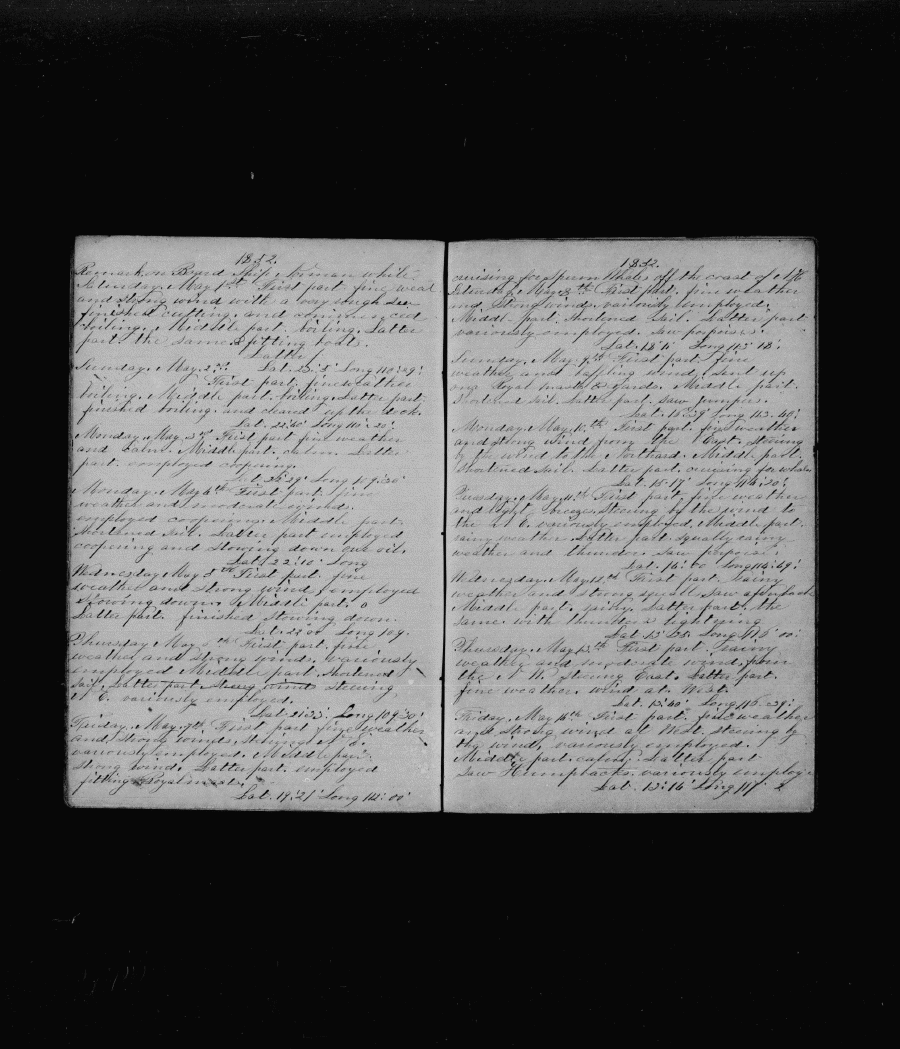 1852.
Remark on Board Ship white
Saturday. May 1st First part fine weat
and strong wind with a very rough Sea
finished cutting. and commenced
boiling. Middle part. boiling. Latter
part. the same. fitting boats.
Latter
Sunday. May. 2nd Lat. Long 110:
First part. fine weather
boiling. Middle part. boiling. Latter part.
finished boiling. and cleared up the deck.
Lat. 22:40 Long 110: 20'
Monday. May. 3rd First part fine weather
and calm. Middle part. calm. Latter
part. employed coopering.
Lat Long
Monday. May 4th First part. fine
weather and moderate winds.
employed coopering. Middle part.
shortened sail. Latter part employed
coopering and stowing down our oil.
Lat 22:10' Long
Wednesday May 5th First part. fine
weather and strong wind, employed
stowing down. Middle part.
Latter part. finished stowing down.
Lat. 22:00' Long 109.
Thursday May 6th First part. fine
weather and strong winds, variously
employed Middle part Shortened
Sail. Latter part Strong wind steering
variously employed.
Lat 21:33' Long 109:30'
Friday. May. 7th. First part fine weather
and strong winds,
variously employed. Middle part
strong wind. Latter part. employed
fitting Royal mast.
Lat. 19:21' Long 112:00'
1852.
cruising for Sperm Whales off the coast of
Saturday. May 8th First part. fine weather
and strong winds. variously employed.
Middle part. shortened sail. Latter part
variously employed. Saw porpoises.
Lat. 18:11' Long 113: 18'
Sunday. May. 9th First part. fine
weather and baffling wind. Sent up
our Royal masts & yards. Middle part.
shortened sail. Latter part. saw jumpers.
Lat. Long 113.
Monday. May. 10th First part. fine weather
and strong wind from the East. Steering
by the wind to the Northard. Middle part.
Shortened Sail. Latter part. cruising for whales
Lat. 15:17' Long
Tuesday. May 11th First part. fine weather
and light breeze. Steering by the wind to
the variously employed. Middle part.
rainy weather. Latter part. squally rainy
weather and thunder. Saw porpoise.
Lat. 14: 00 Long
Wednesday. May 12th First part. rainy
weather and strong squall. Saw a finback
Middle part. rainy. Latter part. the
same. with thunder & lightening
Lat 13' Long 115 00'
Thursday. May 13th First part rainy
weather and moderate wind from
the Steering East. Latter part.
fine weather. wind at West.
Lat. 13:40' Long 116:29'
Friday. May 14th First part. fine weather
and strong wind at West. steering by
the wind, variously employed.
Middle part. calm. Latter part
Saw Humpbacks. variously employ
Lat. 13:16' Long 117